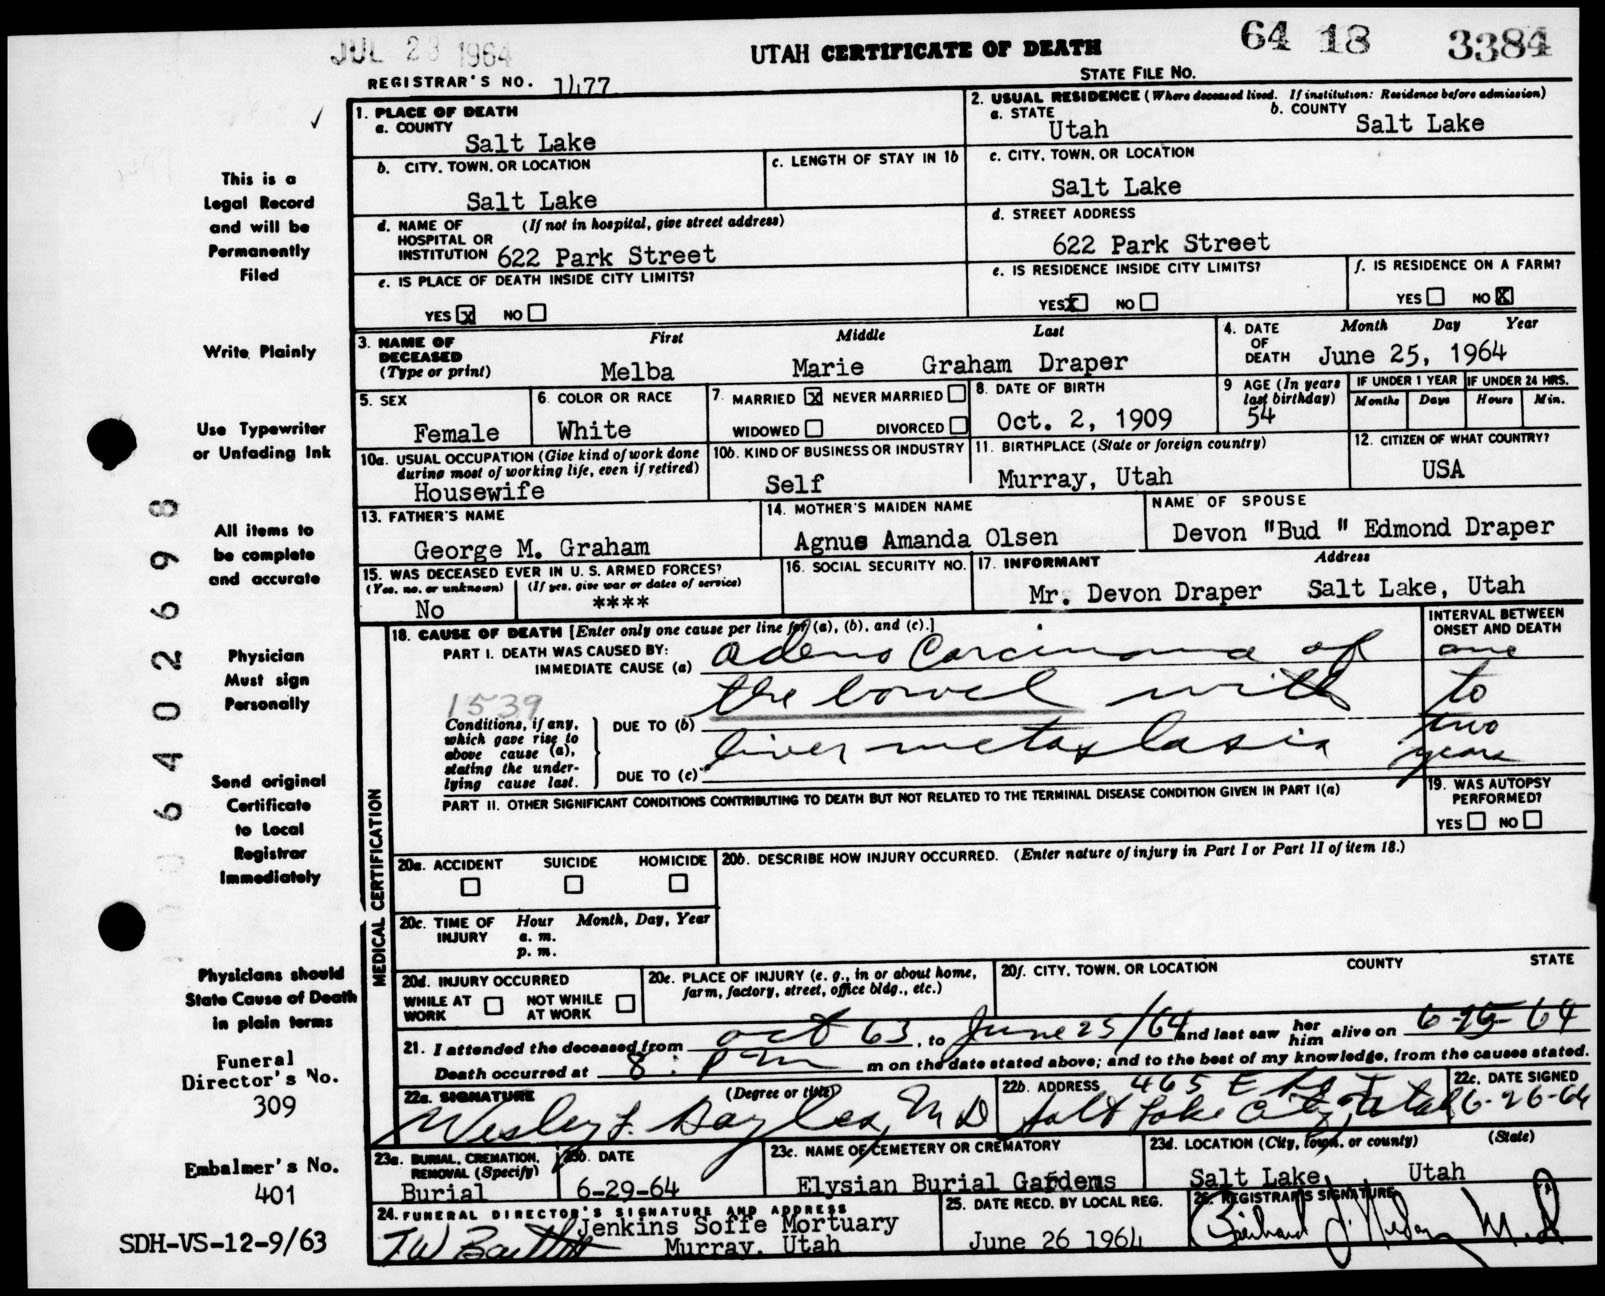 JUL 23 1964
UTAH CERTIFICATE OF DEATH
64 18 3384
REGISTRAR'S NO. 1477
STATE FILE NO.
1. PLACE OF DEATH
a. COUNTY
Salt Lake
2. USUAL RESIDENCE (Where deceased lived. If institution: Residence before admission)
a. STATE
Utah
b. COUNTY
Salt Lake
b. CITY, TOWN, OR LOCATION
Salt Lake
c. LENGTH OF STAY IN 1b
c. CITY, TOWN, OR LOCATION
Salt Lake
d. NAME OF (If not in hospital, give street address)
HOSPITAL OR
INSTITUTION 622 Park Street
d. STREET ADDRESS
622 Park Street
e. IS PLACE OF DEATH INSIDE CITY LIMITS?
YES X NO
e. IS RESIDENCE INSIDE CITY LIMITS?
YES X NO
f. IS RESIDENCE ON A FARM?
YES NO X
3. NAME OF
DECEASED
(Type or print)
First Middle Last
Melba Marie Graham Draper
4. DATE
OF
DEATH
Month Day Year
June 25, 1964
5. SEX
Female
6. COLOR OR RACE
White
7. MARRIED X NEVER MARRIED
WIDOWED DIVORCED
8. DATE OF BIRTH
Oct. 2, 1909
9 AGE (In years
last birthday)
54
IF UNDER 1 YEAR
Months Days
IF UNDER 24 HRS.
Hours Min.
10a. USUAL OCCUPATION (Give kind of work done
during most of working life, even if retired)
Housewife
10b. KIND OF BUSINESS OR INDUSTRY
Self
11. BIRTHPLACE (State or foreign country)
Murray, Utah
12. CITIZEN OF WHAT COUNTRY?
USA
13. FATHER'S NAME
George M. Graham
14. MOTHER'S MAIDEN NAME
Agnus Amanda Olsen
NAME OF SPOUSE
Devon "Bud " Edmond Draper
15. WAS DECEASED EVER IN U. S. ARMED FORCES?
(Yes, no, or unknown) (If yes, give war or dates of service)
No ****
16. SOCIAL SECURITY NO.
17. INFORMANT Address
Mr. Devon Draper Salt Lake, Utah
MEDICAL CERTIFICATION
18. CAUSE OF DEATH [Enter only one cause per line for (a), (b), and (c).]
PART I. DEATH WAS CAUSED BY:
IMMEDIATE CAUSE (a) Adeno Carcinoma of
1539
the bowel with
Conditions, if any,
which gave rise to
above cause (a),
stating the under-
lying cause last.
DUE TO (b)
liver metastasis
DUE TO (c)
INTERVAL BETWEEN
ONSET AND DEATH
one
to
two
years
PART II. OTHER SIGNIFICANT CONDITIONS CONTRIBUTING TO DEATH BUT NOT RELATED TO THE TERMINAL DISEASE CONDITION GIVEN IN PART I(a)
19. WAS AUTOPSY
PERFORMED?
YES NO
20a. ACCIDENT SUICIDE HOMICIDE
20b. DESCRIBE HOW INJURY OCCURRED. (Enter nature of injury in Part I or Part II of item 18.)
20c. TIME OF Hour Month, Day, Year
INJURY a. m.
p. m.
20d. INJURY OCCURRED
WHILE AT NOT WHILE
WORK AT WORK
20e. PLACE OF INJURY (e. g., in or about home,
farm, factory, street, office bldg., etc.)
20f. CITY, TOWN, OR LOCATION COUNTY STATE
21. I attended the deceased from Oct 63, to June 25/64 and last saw her him alive on 6-25-64
Death occurred at 8: pm m on the date stated above; and to the best of my knowledge, from the causes stated.
22a. SIGNATURE (Degree or title)
Wesley F. Bayles, MD
22b. ADDRESS 465 E
Salt Lake City, Utah
22c. DATE SIGNED
6-26-64
23a. BURIAL, CREMATION,
REMOVAL (Specify)
Burial
23b. DATE
6-29-64
23c. NAME OF CEMETERY OR CREMATORY
Elysian Burial Gardens
23d. LOCATION (City, town, or county) (State)
Salt Lake, Utah
24. FUNERAL DIRECTOR'S SIGNATURE AND ADDRESS
Jenkins Soffe Mortuary
T.W. Bartlett Murray, Utah
25. DATE RECD. BY LOCAL REG.
June 26 1964
26. REGISTRAR'S SIGNATURE
This is a
Legal Record
and will be
Permanently
Filed
Write Plainly
Use Typewriter
or Unfading Ink
All items to
be complete
and accurate
Physician
Must sign
Personally
Send original
Certificate
to Local
Registrar
Immediately
Physicians should
State Cause of Death
in plain terms
Funeral
Director's No.
309
Embalmer's No.
401
SDH-VS-12-9/63
6402698